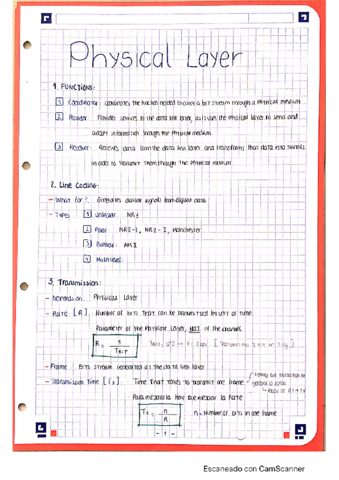 Physical Layer
1. FUNCTIONS:
1 Coordinator: Coordinates the function needed to cover a bit stream through a physical medium.
2 Provider: Provides services to the data link layer, so it uses the physical layer to send and
adapt information through the physical medium
3 Receiver: Receives data from the data link layer and transforms that data into signals
in order to transmit them through the physical medium
2. Line Coding:
- What for?: Generates digital signals from digital data
- Types 1 Unipolar NRZ
2 Polar NRZ-L, NRZ-I, Manchester
3 Bipolar AMI
4 Multilevel
3. Transmission:
- Depends on: Physical Layer
- Rate [R]: Number of bits that can be transmitted by unit of time.
Parameter of the Physical Layer, NOT of the channel.
R = 1 / TBIT
- Frame: Bits stream generated at the data link layer
- Transmission Time [Tx]: Time that takes to transmit one frame
Tx = n / R n = Number of bits in the frame
- 1 -
Escaneado con CamScanner